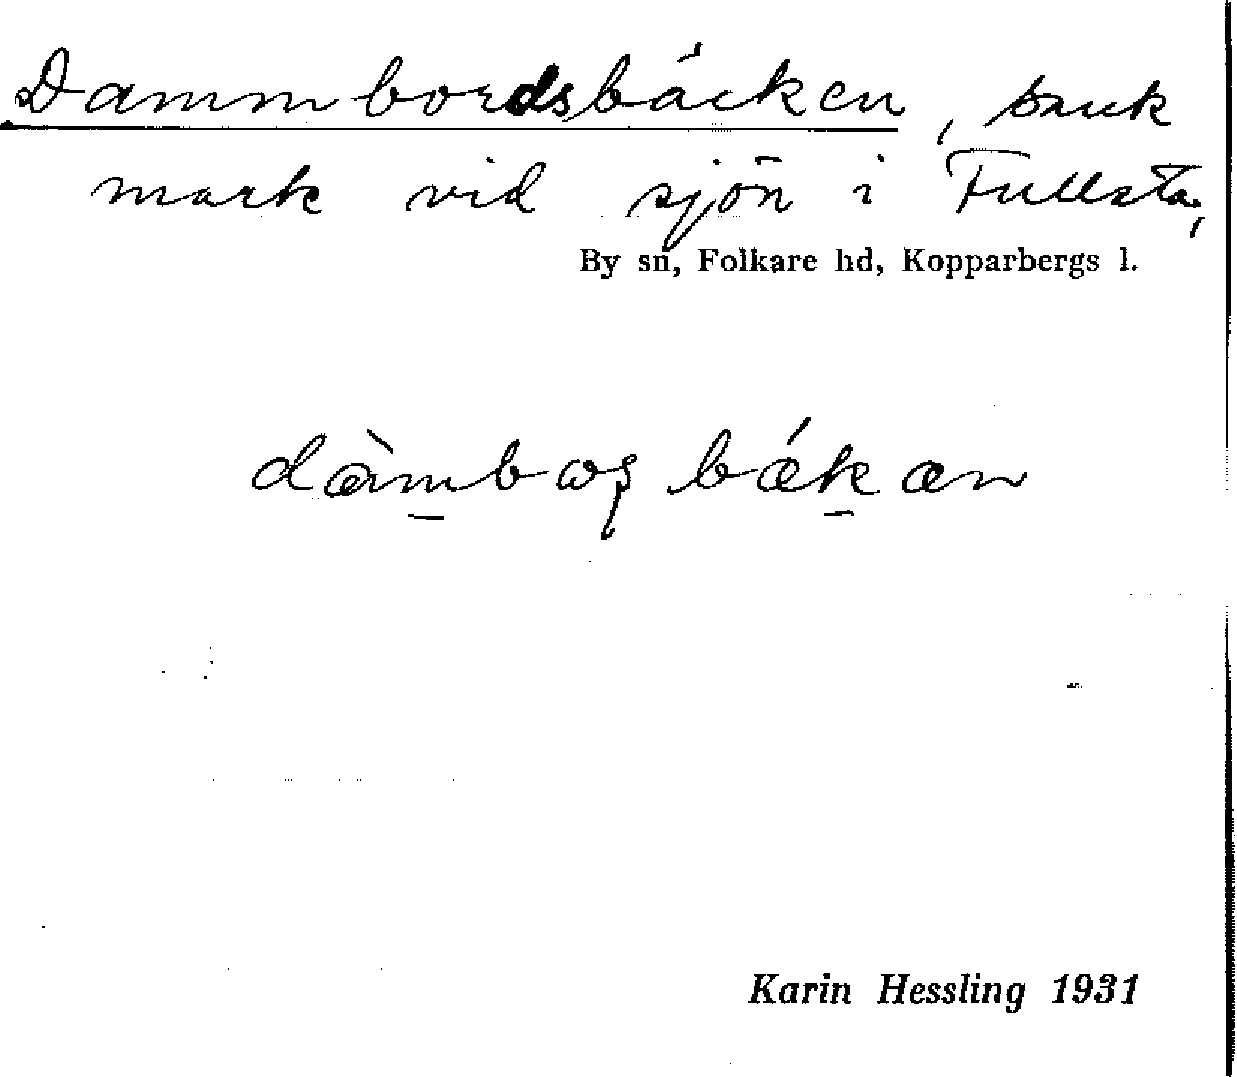 Dammbordsbäcken, bruk
mark vid sjön i Fullsta,
By sn, Folkare hd, Kopparbergs l.
dàmbωʂ bǽkæn
Karin Hessling 1931